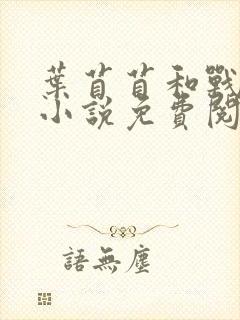 葉苜苜和戰
小說免費閱
語無塵